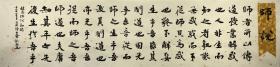 師說
師者所以傳
道受業解惑
也人非生而
知之者孰能無
惑惑而不從
師其為惑也
終不解矣生乎
吾前其聞道
也固先乎吾吾
從而師之生乎
吾後其聞道也
亦先乎吾吾
從而師之吾
師道也夫庸
知其年之先
後生於吾乎